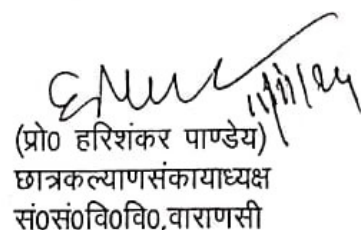 11/11/24
(प्रो० हरिशंकर पाण्डेय)
छात्रकल्याणसंकायाध्यक्ष
सं०सं०वि०वि०,वाराणसी